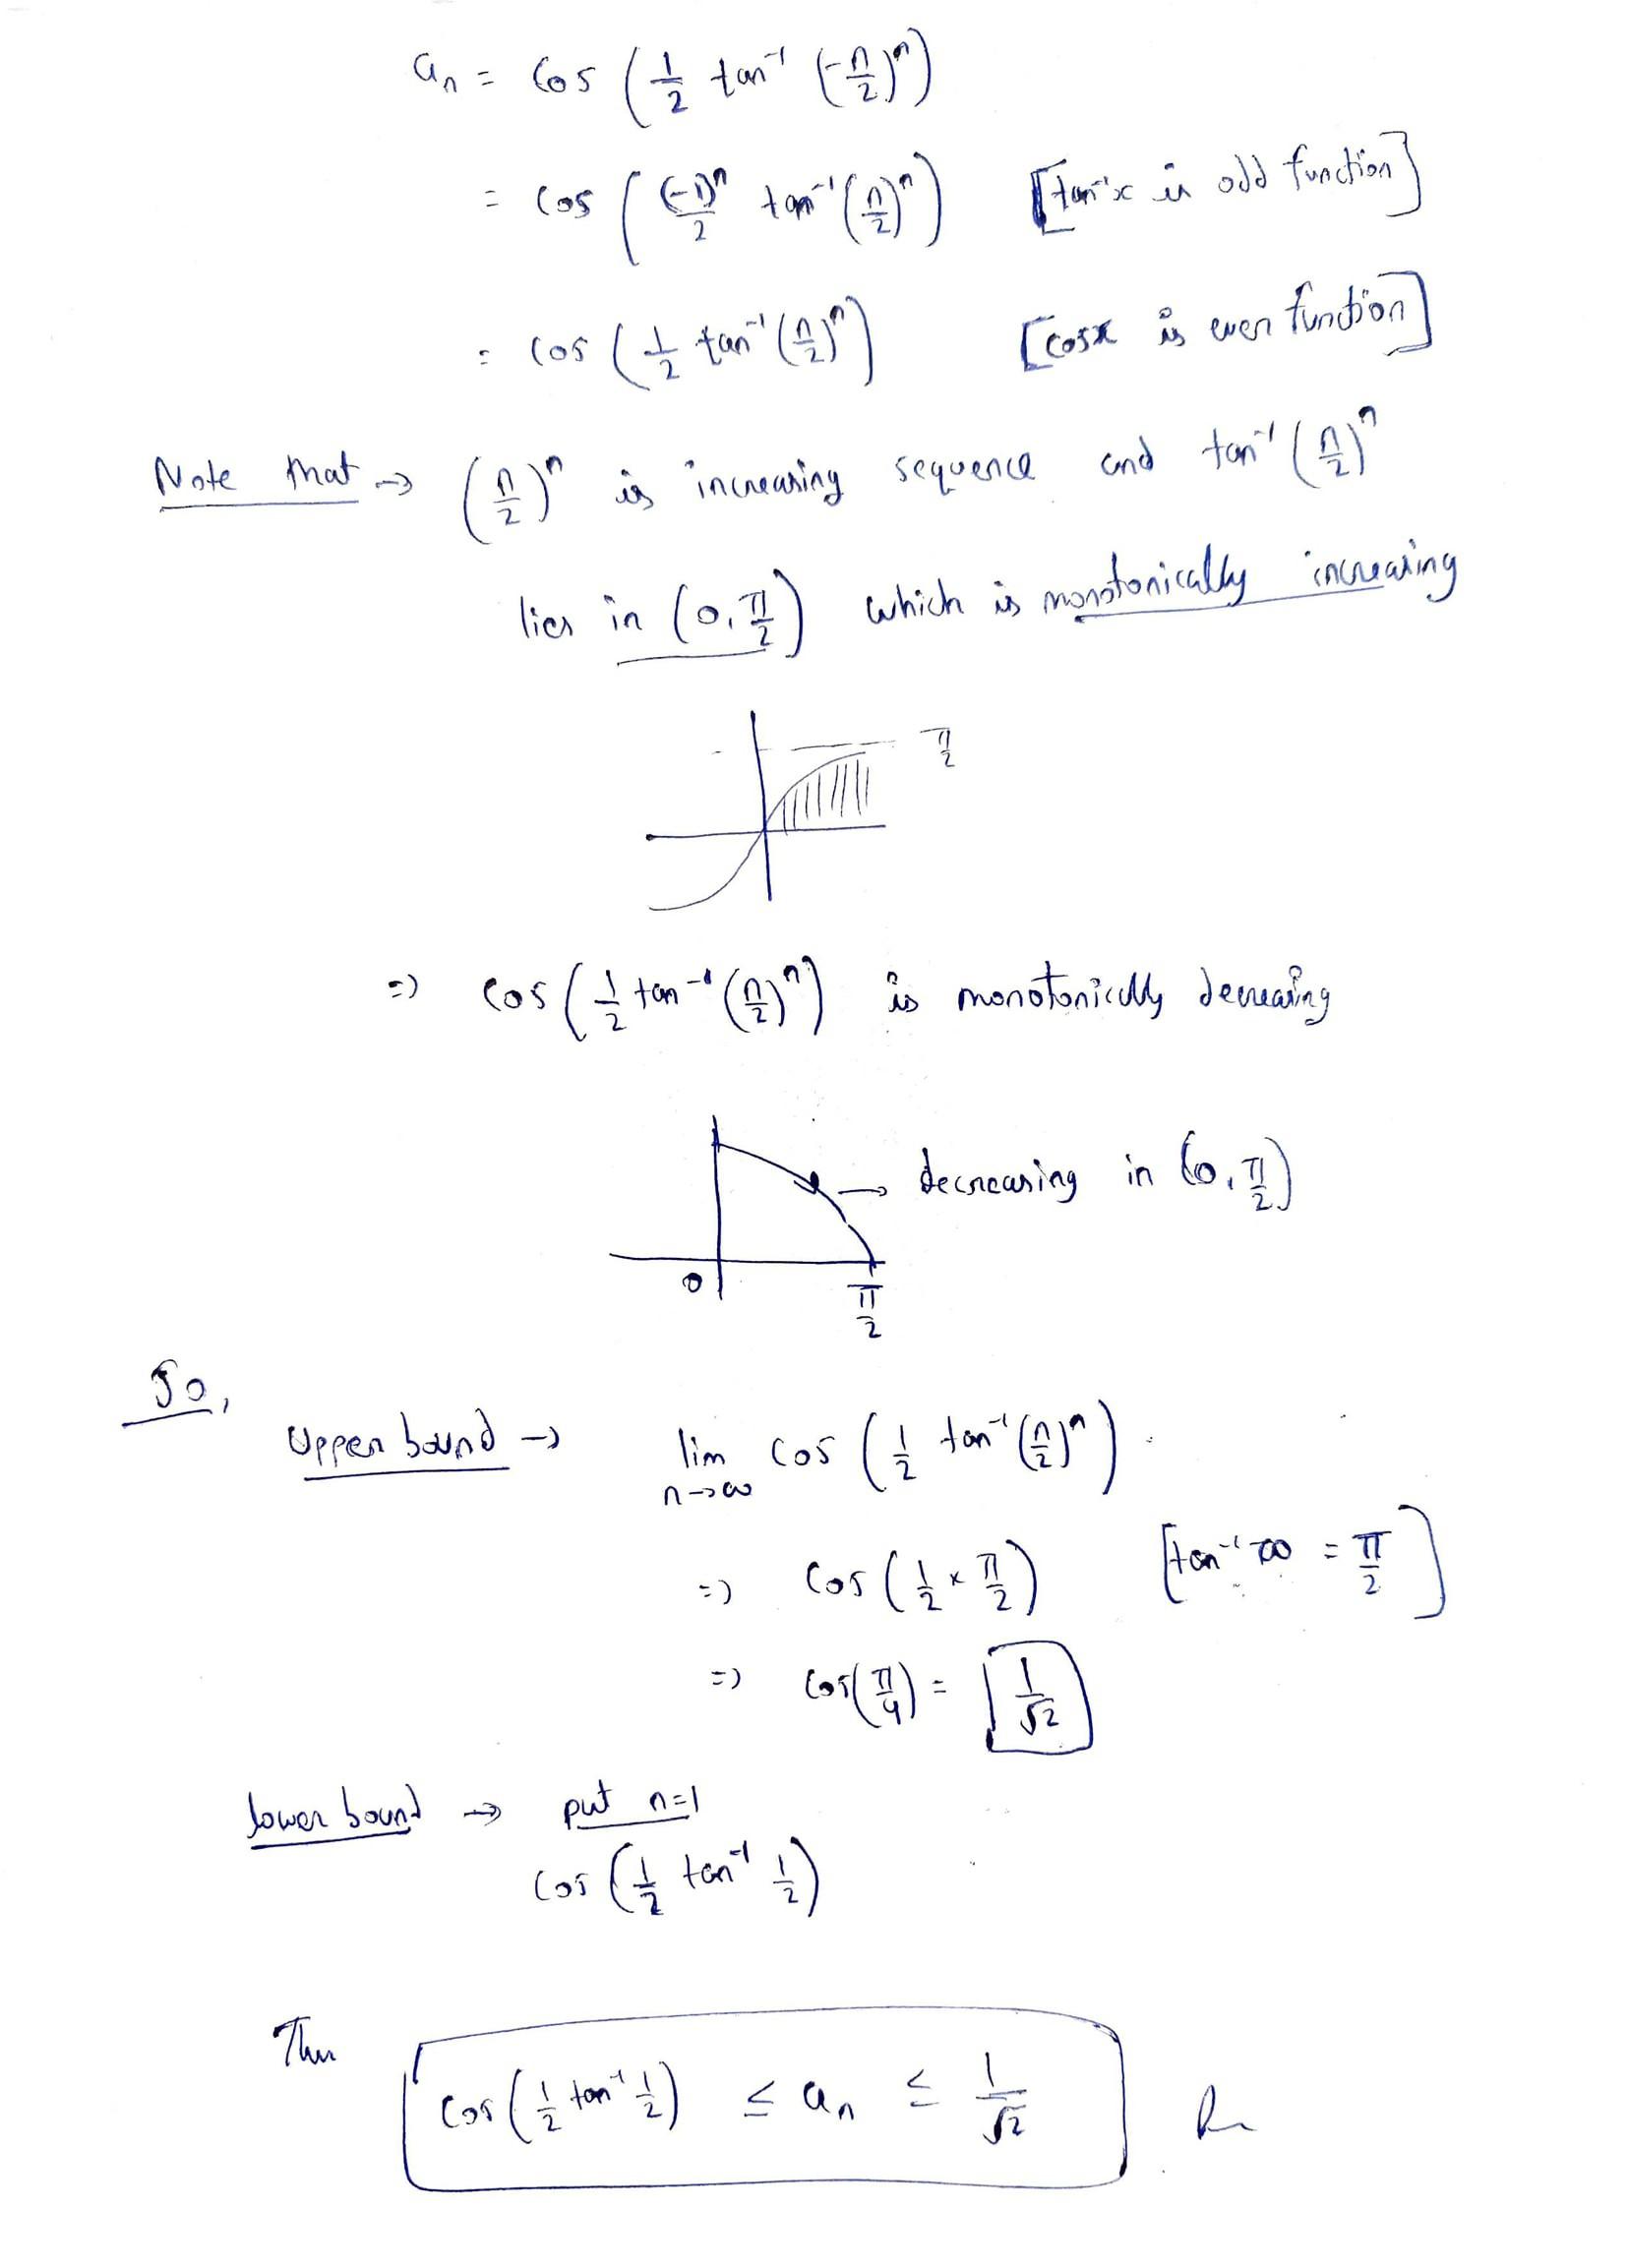 aₙ = Cos (1/2 tan⁻¹ (-n/2)ⁿ)
= Cos ((-1)ⁿ/2 tan⁻¹ (n/2)ⁿ) [tan⁻¹x is odd function]
= Cos (1/2 tan⁻¹ (n/2)ⁿ) [cosx is even function]
Note that → (n/2)ⁿ is increasing sequence and tan⁻¹ (n/2)ⁿ
lies in (0, π/2) which is monotonically increasing
π/2
⇒ Cos (1/2 tan⁻¹ (n/2)ⁿ) is monotonically decreasing
→ decreasing in (0, π/2)
0
π/2
So,
Upper bound → lim n→∞ Cos (1/2 tan⁻¹ (n/2)ⁿ)
⇒ Cos (1/2 × π/2) [tan⁻¹ ∞ = π/2]
⇒ Cos(π/4) = 1/√2
lower bound → put n=1
Cos (1/2 tan⁻¹ 1/2)
Thus
Cos (1/2 tan⁻¹ 1/2) ≤ aₙ ≤ 1/√2